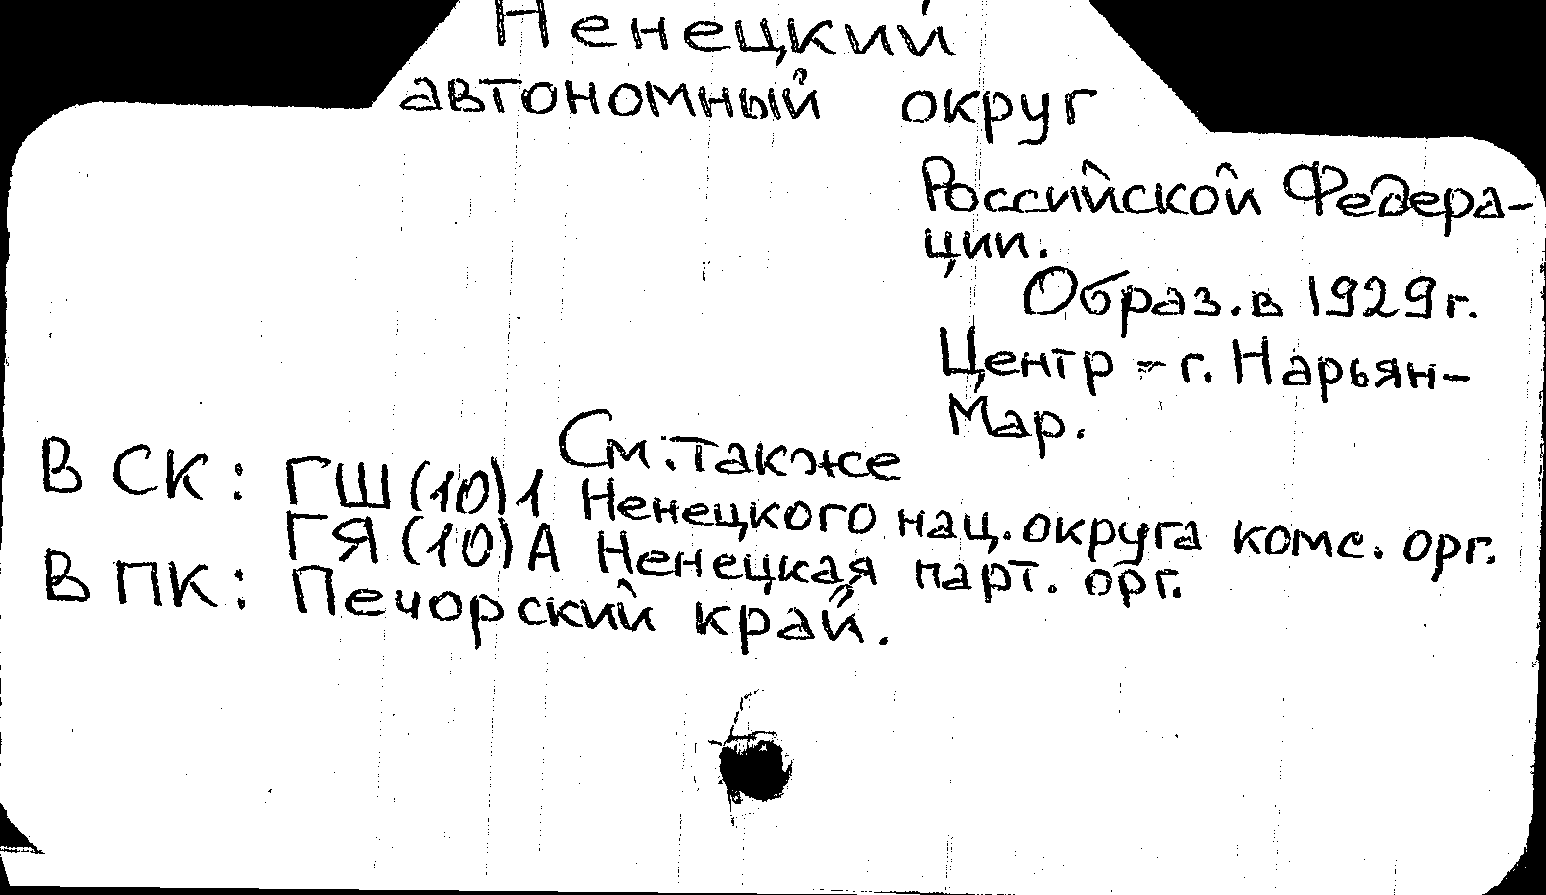 Ненецкий
автономный округ
Российской Федера-
ции.
Образ. в 1929 г.
Центр - г. Нарьян-
Мар.
См. также
В СК: ГШ(10)1 Ненецкого нац. округа комс. орг.
ГЯ(10)А Ненецкая парт. орг.
В ПК: Печорский край.